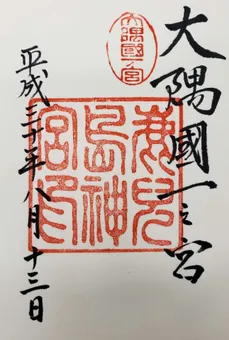 大隅國一之宮
大隅國一宮
鹿兒島神宮印
平成三十年八月十三日